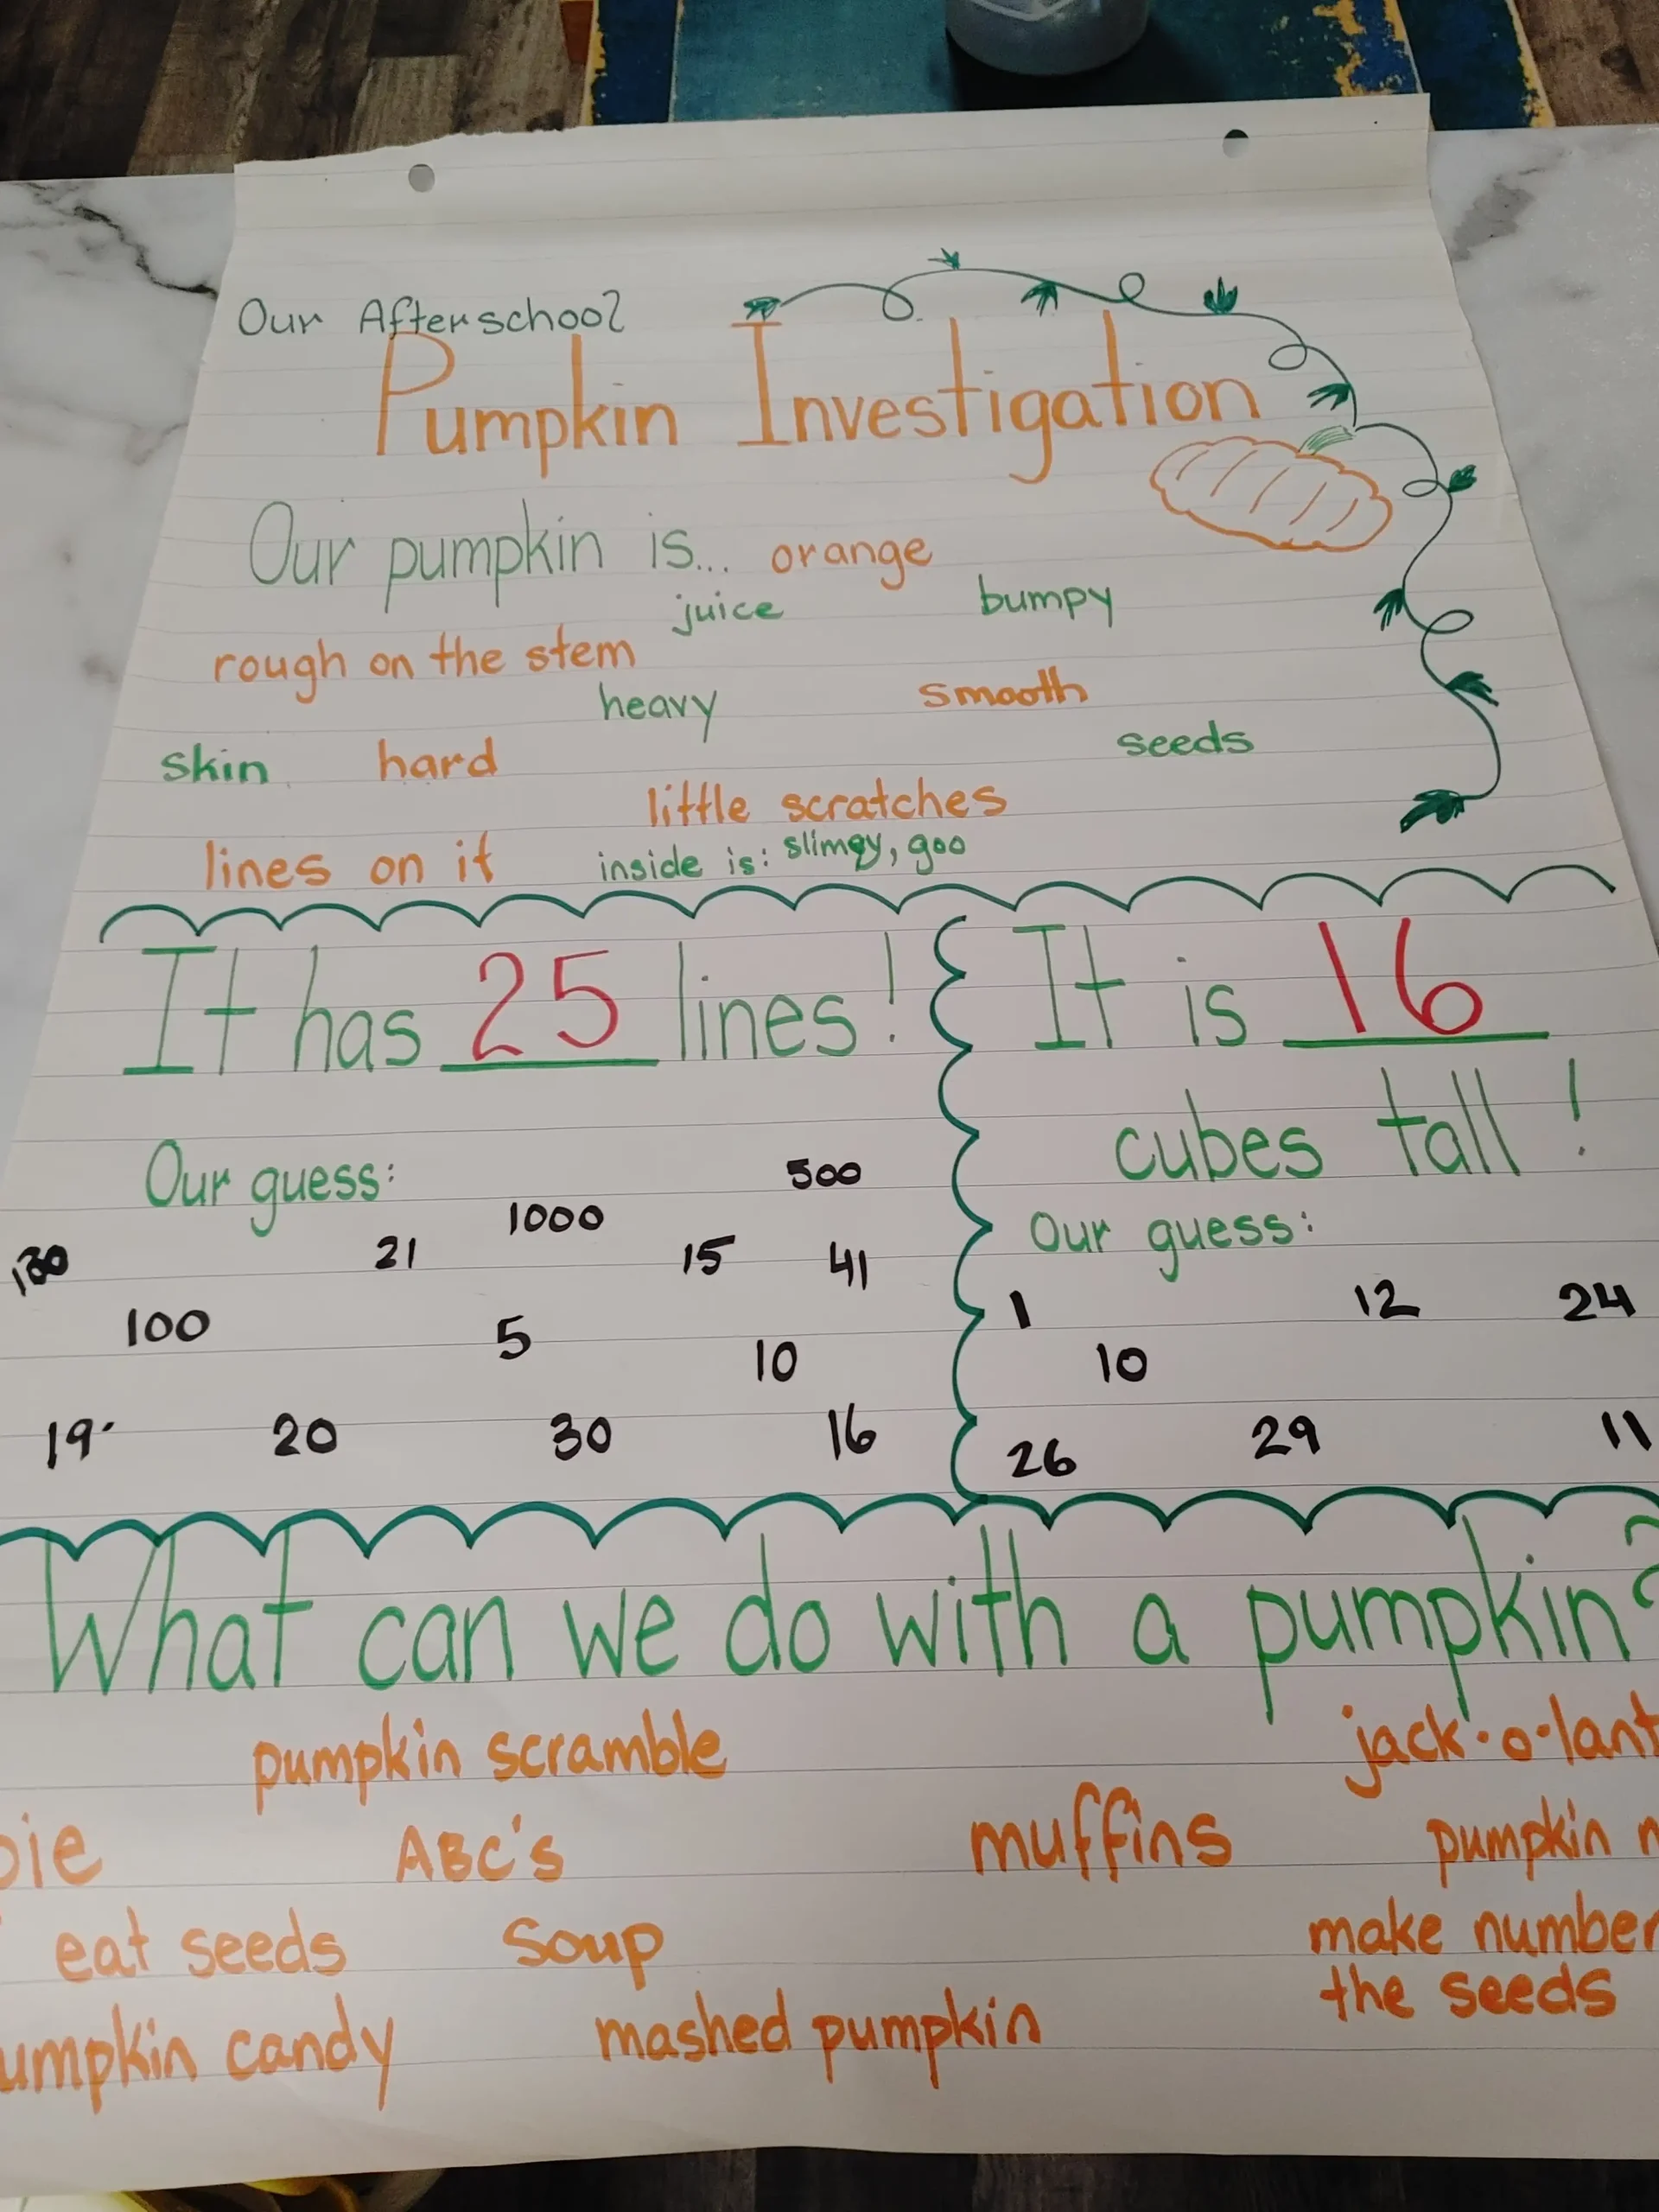 Our Afterschool
Pumpkin Investigation
Our pumpkin is... orange
juice bumpy
rough on the stem
heavy smooth
skin hard seeds
little scratches
lines on it inside is: slimey, goo
It has 25 lines!
Our guess:
500
1000
130 21 15 41
100 5 10
19 20 30 16
It is 16
cubes tall!
Our guess:
1 12 24
10
26 29 11
What can we do with a pumpkin?
pumpkin scramble jack-o-lant
pie ABC's muffins pumpkin
eat seeds soup make number
the seeds
umpkin candy mashed pumpkin